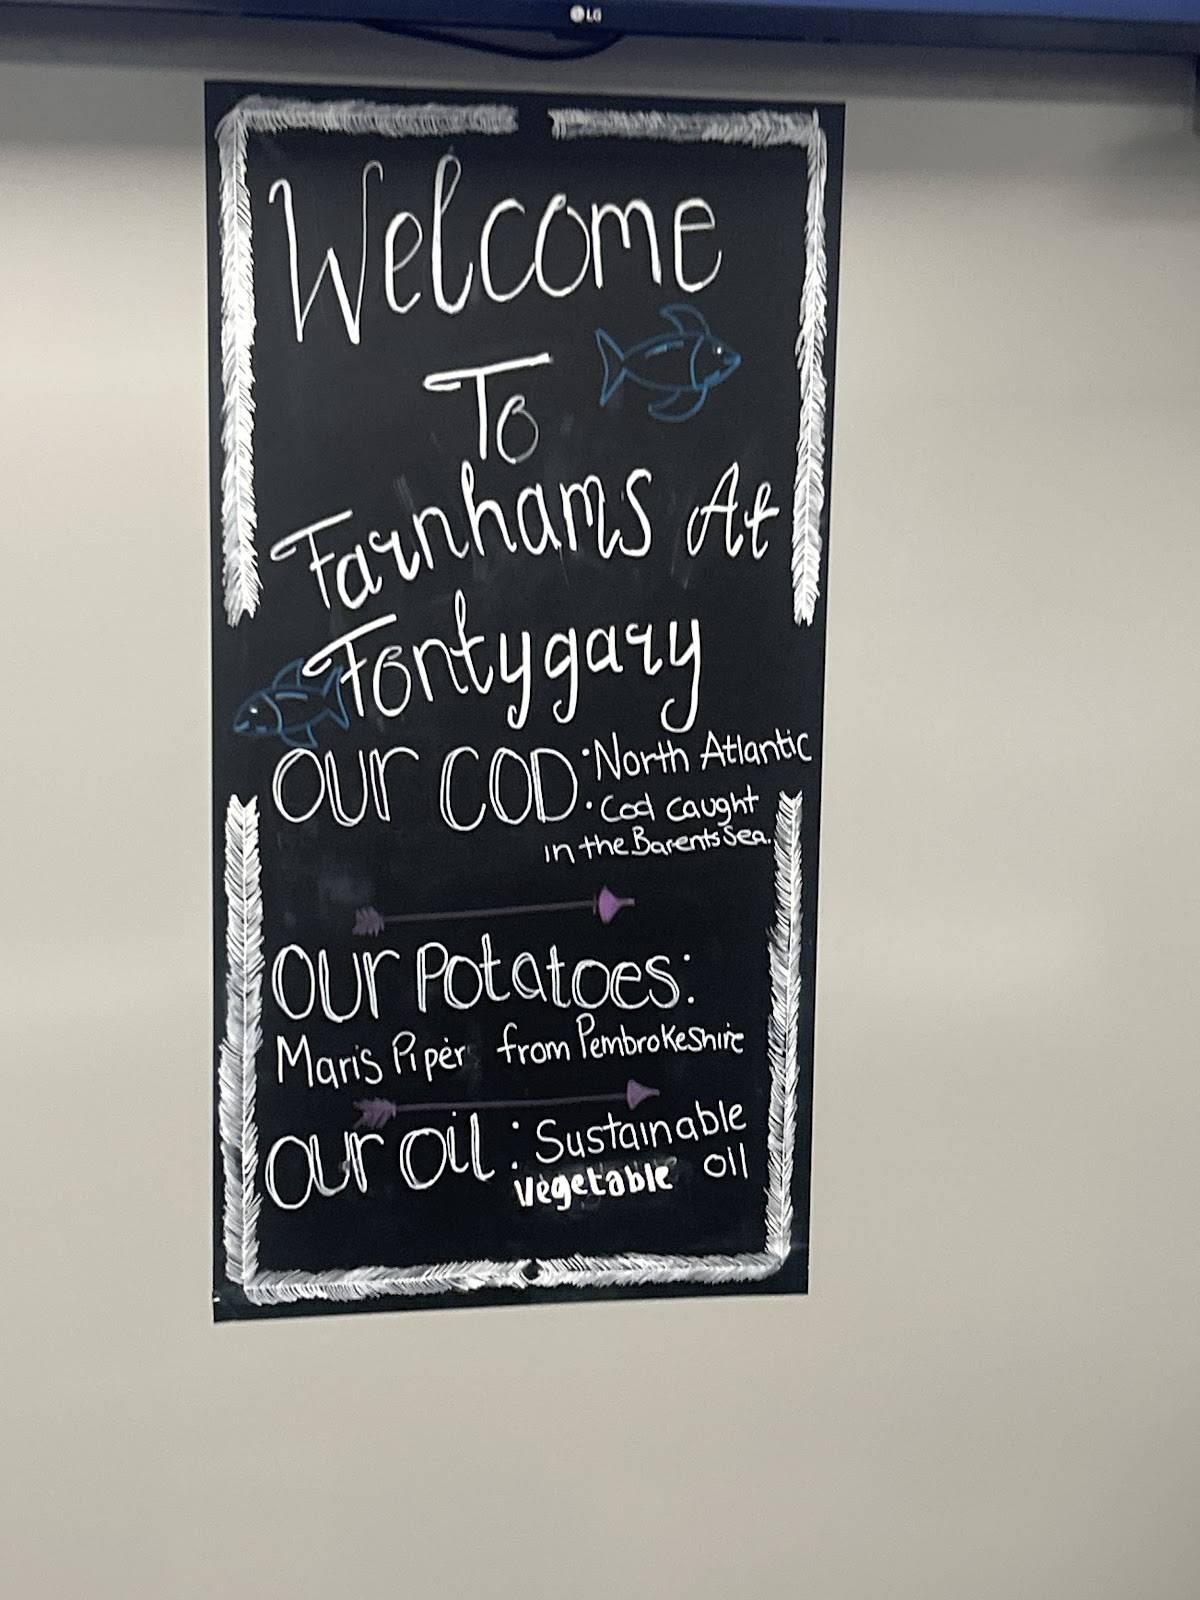 LG
Welcome
To
Farnhams At
Fontygary
Our COD: • North Atlantic
• Cod caught
in the Barents Sea.
Our Potatoes:
Maris Piper from Pembrokeshire
Our oil: Sustainable
Vegetable oil